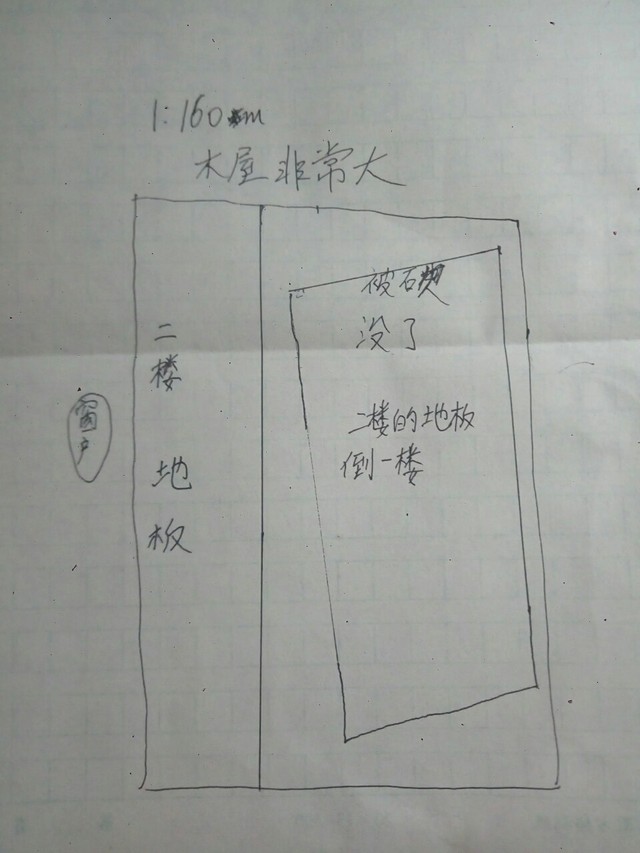 1:160m
木屋非常大
二楼地板
窗户
被砸
没了
二楼的地板
倒一楼